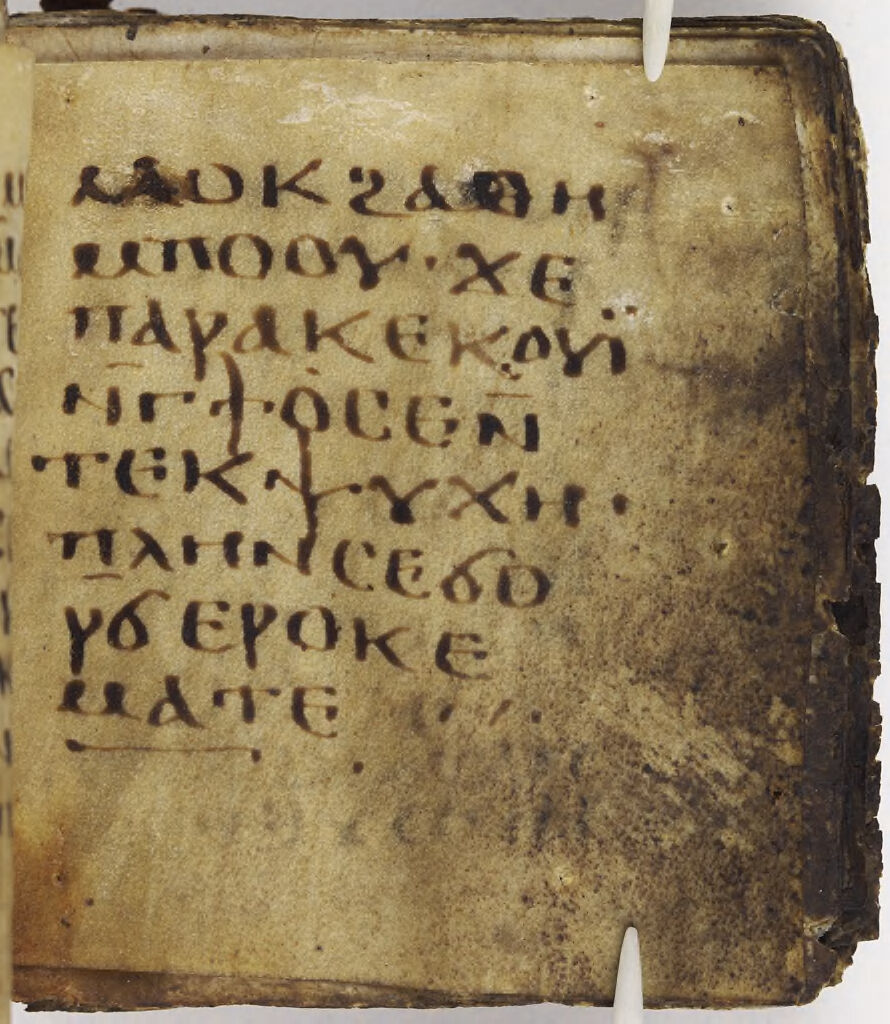 ⲙⲙⲟⲕϩⲁⲑⲏ
ⲙⲡⲟⲟⲩ·ϫⲉ
ⲡⲁⲣⲁⲕⲉⲕⲟⲩⲓ̈
ⲛ̄ⲅϯⲟⲥⲉⲛ̄
ⲧⲉⲕⲯⲩⲭⲏ·
ⲡⲗⲏⲛⲥⲉϭⲟ
ⲣ̄ϭⲉⲣⲟⲕⲉ
ⲙⲁⲧⲉ